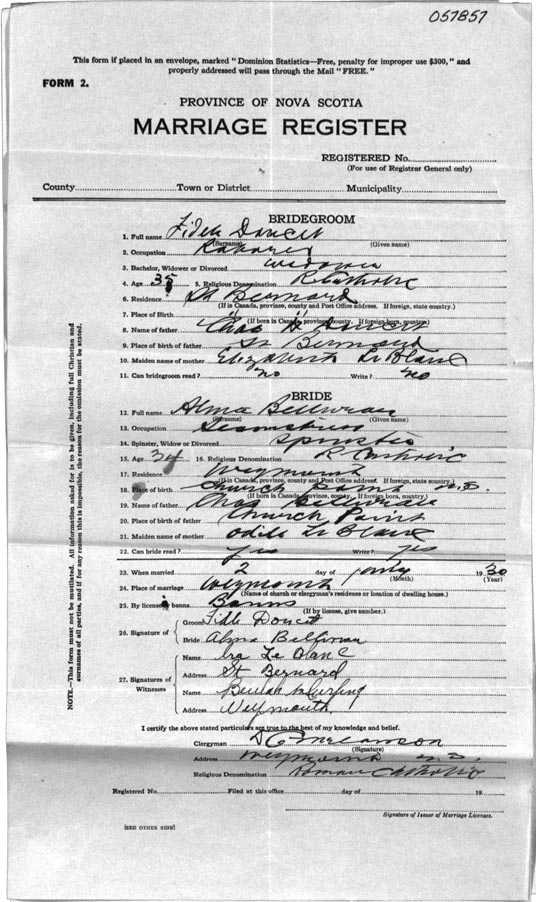 057857
This form if placed in an envelope, marked "Dominion Statistics—Free, penalty for improper use $300," and
properly addressed will pass through the Mail "FREE."
FORM 2.
PROVINCE OF NOVA SCOTIA
MARRIAGE REGISTER
REGISTERED No.
(For use of Registrar General only)
County Town or District Municipality
BRIDEGROOM
1. Full name Fidele Doucet
(Surname) (Given name)
2. Occupation Laborer
3. Bachelor, Widower or Divorced widower
4. Age 38 5. Religious Denomination R Catholic
6. Residence St Bernard
(If in Canada, province, county and Post Office address. If foreign, state country.)
7. Place of Birth " "
(If born in Canada, province, county. If foreign, country.)
8. Name of father Chas Doucet
9. Place of birth of father St Bernard
10. Maiden name of mother Elizabeth Le Blanc
11. Can bridegroom read? no Write? no
BRIDE
12. Full name Alma Belliveau
(Surname) (Given name)
13. Occupation
14. Spinster, Widow or Divorced Spinster
15. Age 34 16. Religious Denomination R Catholic
17. Residence Weymouth
(If in Canada, province, county and Post Office address. If foreign, state country.)
18. Place of birth Church Point N.S.
(If born in Canada, province, county. If foreign, country.)
19. Name of father Chas Belliveau
20. Place of birth of father Church Point
21. Maiden name of mother Odile Le Blanc
22. Can bride read? yes Write? yes
23. When married 2 day of 1930
(Month) (Year)
24. Place of marriage Weymouth
(Name of church or clergyman's residence or location of dwelling house.)
25. By license or banns Banns
(If by license, give number.)
26. Signature of
Groom Fidele Doucet
Bride Alma Belliveau
27. Signatures of Witnesses
Name Le Blanc
Address St Bernard
Name Beulah
Address Weymouth
I certify the above stated particulars are true to the best of my knowledge and belief.
Clergyman
(Signature)
Address Weymouth N.S.
Religious Denomination Roman Catholic
Registered No. Filed at this office day of 19
Signature of Issuer of Marriage Licenses.
[SEE OTHER SIDE]
NOTE.—This form must not be mutilated. All information asked for is to be given, including full Christian and
surnames of all parties, and if for any reason this is impossible, the reason for the omission must be stated.